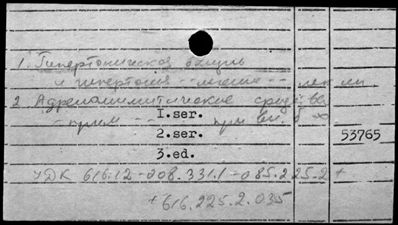 1. Гипертоническая болезнь
и гипертония -- лечение --
2. Адреномиметические средства
I.ser.
-- прим. -- при
2.ser.
53765
3.ed.
УДК 616.12-008.331.1-085.225.2 +
+ 616.225.2.035